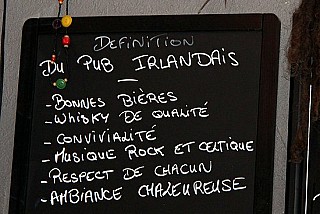 DEFINITION
DU PUB IRLANDAIS
-
- BONNES BIÈRES
- WHISKY DE QUALITÉ
- CONVIVIALITÉ
- MUSIQUE ROCK ET CELTIQUE
- RESPECT DE CHACUN
- AMBIANCE CHALEUREUSE